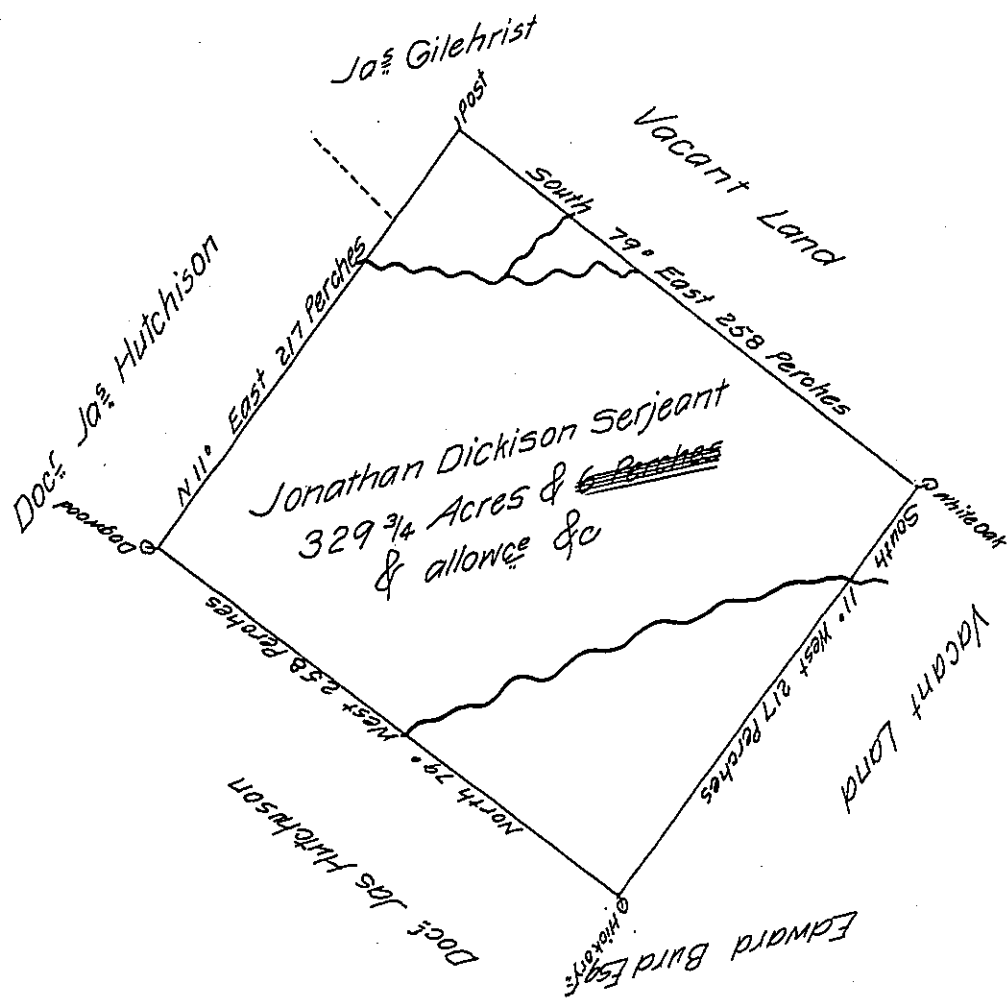 Jas Gilehrist
post
Vacant Land
South 79° East 258 Perches
N 11° East 217 Perches
Docr Jas Hutchison
Dogwood
Jonathan Dickison Serjeant
329 3/4 Acres & 6 Perches
& allowce &c
White Oak
South 11° West 217 Perches
Vacant Land
North 79° West 258 Perches
Docr Jas Hutchison
Hickory
Edward Burd Esqr